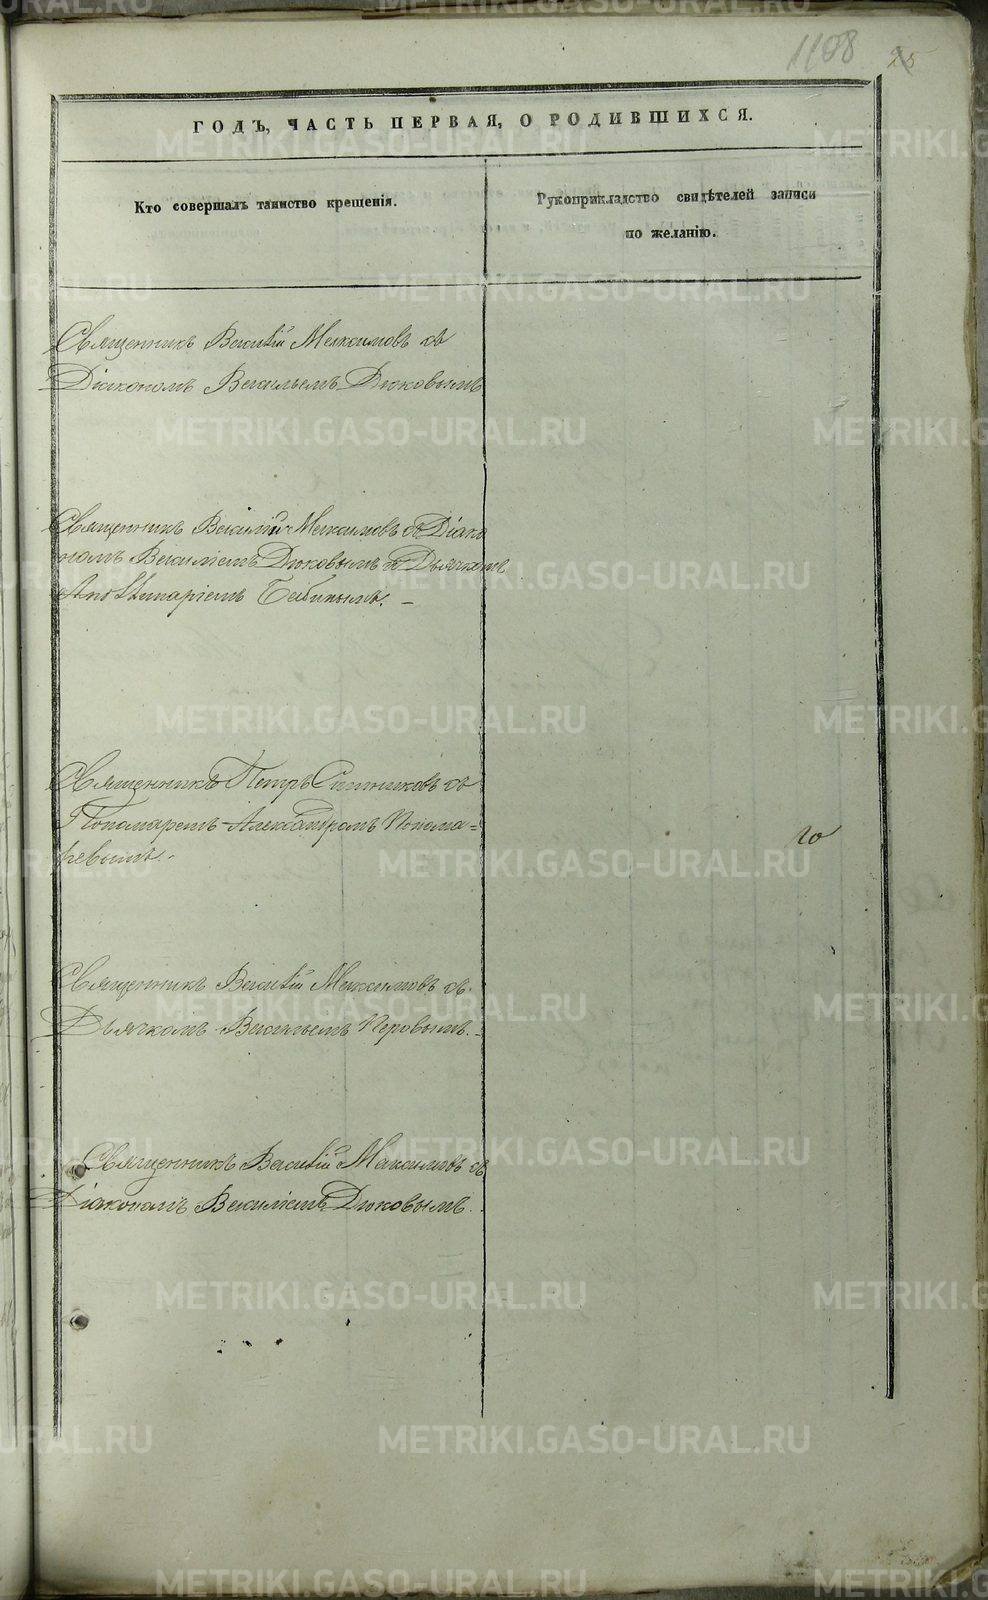 1108 25
ГОДЪ, ЧАСТЬ ПЕРВАЯ, О РОДИВШИХСЯ.
Кто совершалъ таинство крещенія.
Рукоприкладство свидѣтелей записи
по желанію.
Священникъ Василій Максимовъ съ
Діакономъ Васильемъ Дюковымъ
Священникъ Василій Максимовъ съ Діако
номъ Василіемъ Дюковымъ и Дьячкомъ
Апполинаріемъ Бабинымъ. –
Священникъ Петръ Ситниковъ съ
Пономаремъ Александромъ Понома=
ревымъ.
Священникъ Василій Максимовъ съ
Дьячкомъ Васильемъ Перовымъ.
Священникъ Василій Максимовъ съ
Діакономъ Василіемъ Дюковымъ.
METRIKI.GASO-URAL.RU